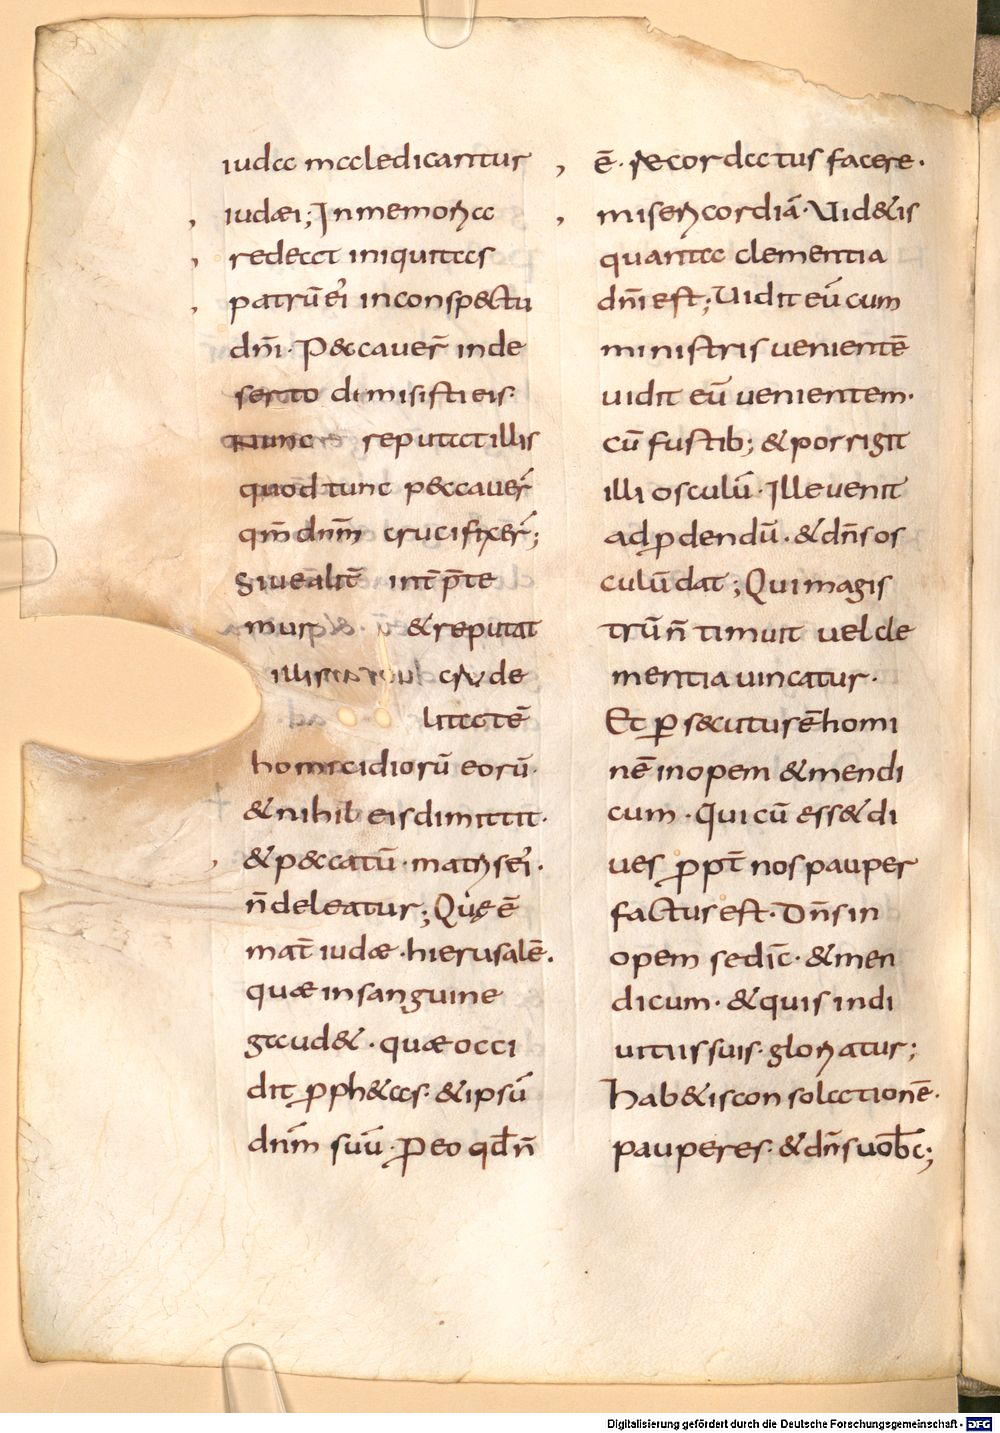 iuda maledicantur
iudæi; In memoria
redeat iniquitas
patrū ei' in conspectu
dn̄i. Peccauer̄ in de
serto dimisisti eis.
nunc reputat illis
quod tunc peccauer̄
qm̄ dnm̄ crucifixer̄;
Siue alit̄ int̄p̄te
mur & reputat
illis crude
litatē
homicidiorū eorū.
& nihil eis dimittit.
& peccatū. matris ei'.
n̄ deleatur; Quę ē
mat̄ iudæ. hierusalē.
quæ in sanguine
gaudet. quæ occi
dit ꝓphetas. & ipsū
dnm̄ suū. Pro eo qd̄ n̄
ē. recordatus facere.
misericordiā. Uidetis
quanta clementia
dn̄i est; Uidit eū cum
ministris uenientē
uidit eū uenientem.
cū fustib; & porrigit
illi osculū. Ille uenit
ad ꝑdendū. & dn̄s os
culū dat; Qui magis
trū n̄ timuit uel cle
mentia uincatur.
Et ꝑsecutus ē homi
nē inopem & mendi
cum. Qui cū esset di
ues ꝓpt̄ nos pauper
factus est. Dn̄s in
opem se dic̄. & men
dicum. & quis in di
uitiis suis. gloriatur;
habetis consolationē.
pauperes. & dn̄s uob̄c;
Digitalisierung gefördert durch die Deutsche Forschungsgemeinschaft - DFG